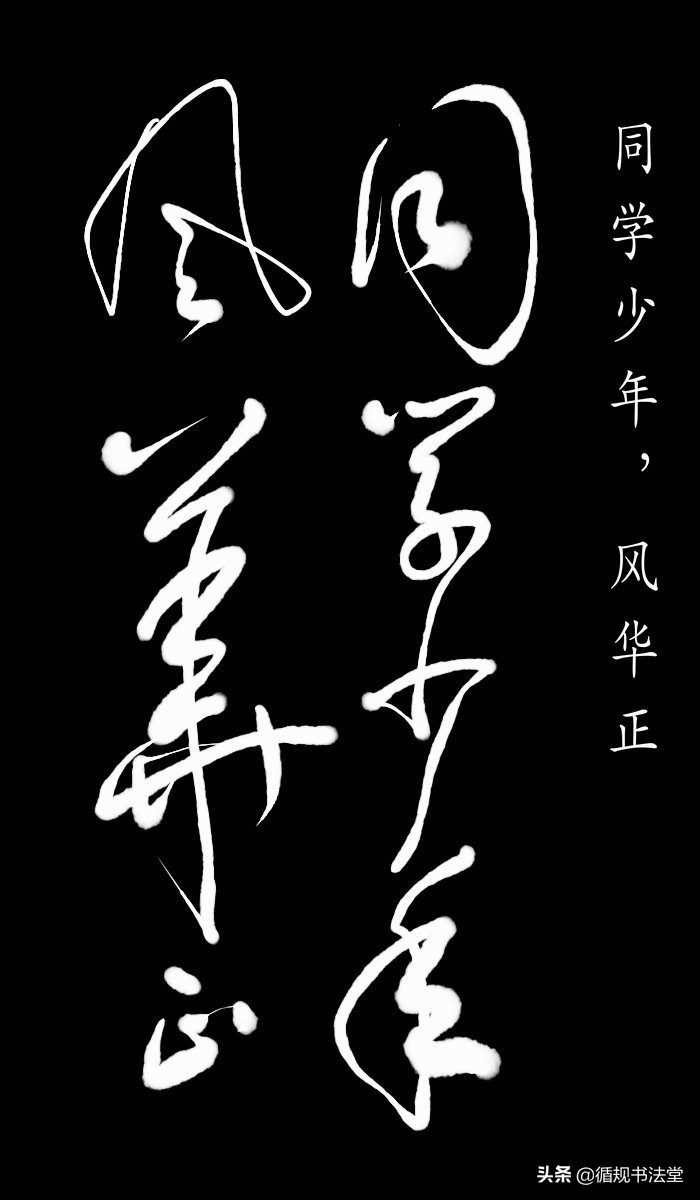 同学少年，风华正
同学少年
风华正
头条 @循规书法堂